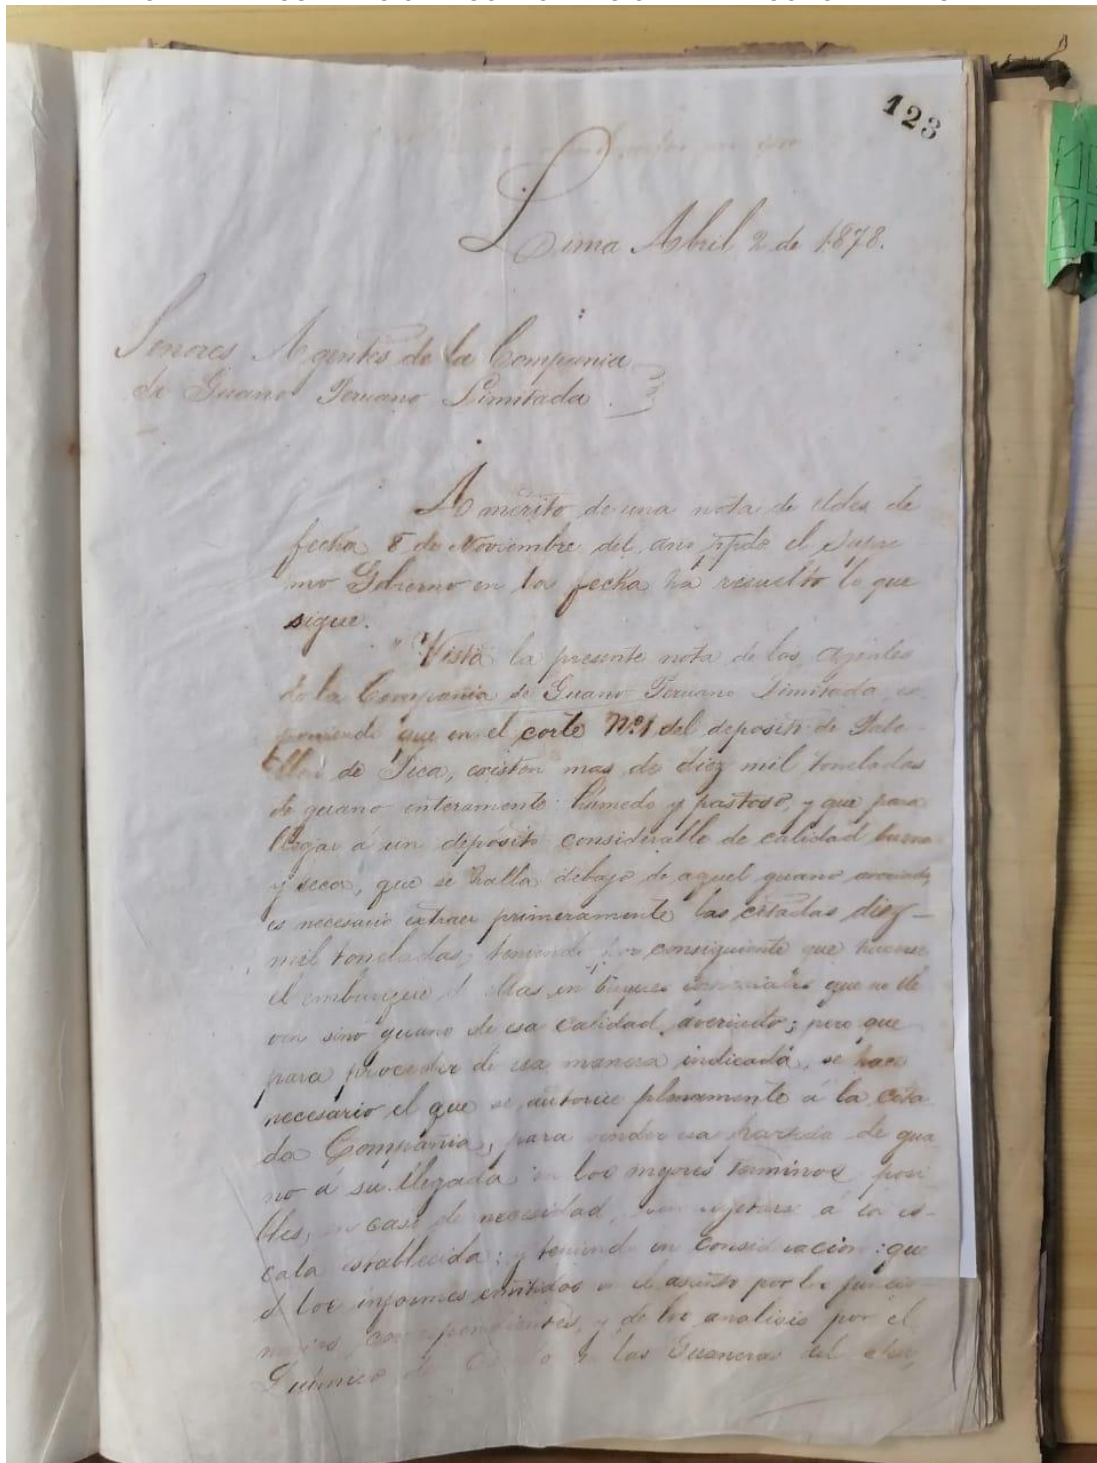 123
Lima Abril 2 de 1878.
Señores Agentes de la Compañia
de Guano Peruano Limitada.
A mérito de una nota de Udes de
fecha 8 de Noviembre del año ppdo el Supre
mo Gobierno en la fecha ha resuelto lo que
sigue.
"Vista la presente nota de los Agentes
de la Compañia de Guano Peruano Limitada, ex
poniendo que en el corte Nº1 del deposito de Pabe-
llon de Pica, existen mas de diez mil toneladas
de guano enteramente húmedo y pastoso, y que para
llegar á un depósito considerable de calidad buena
y seca, que se halla debajo de aquel guano averiado,
es necesario extraer primeramente las citadas diez-
mil toneladas, teniendo por consiguiente que hacerse
el embarque de ellas en buques que no lle
ven sino guano de esa calidad averiado; pero que
para proceder de esa manera indicada, se hace
necesario el que se autorice plenamente á la cita
da Compañia, para vender esa partida de gua
no á su llegada en los mejores terminos posi
bles, en caso de necesidad, sin sujetarse á la es-
cala establecida; y teniendo en consideracion: que
de los informes emitidos en el asunto por los funcio-
narios correspondientes, y de los analisis por el
Quimico de las Guaneras del Sur,